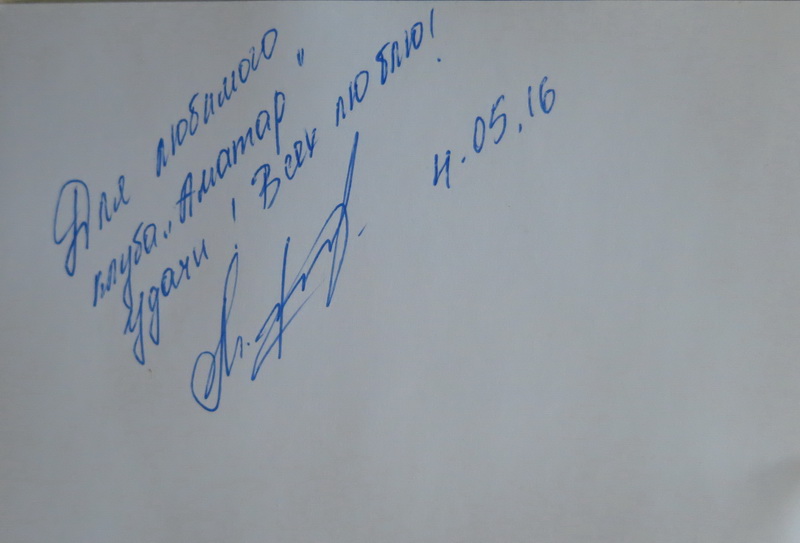 Для любимого
клуба „Аматар"
удачи! Всех люблю!
4.05.16